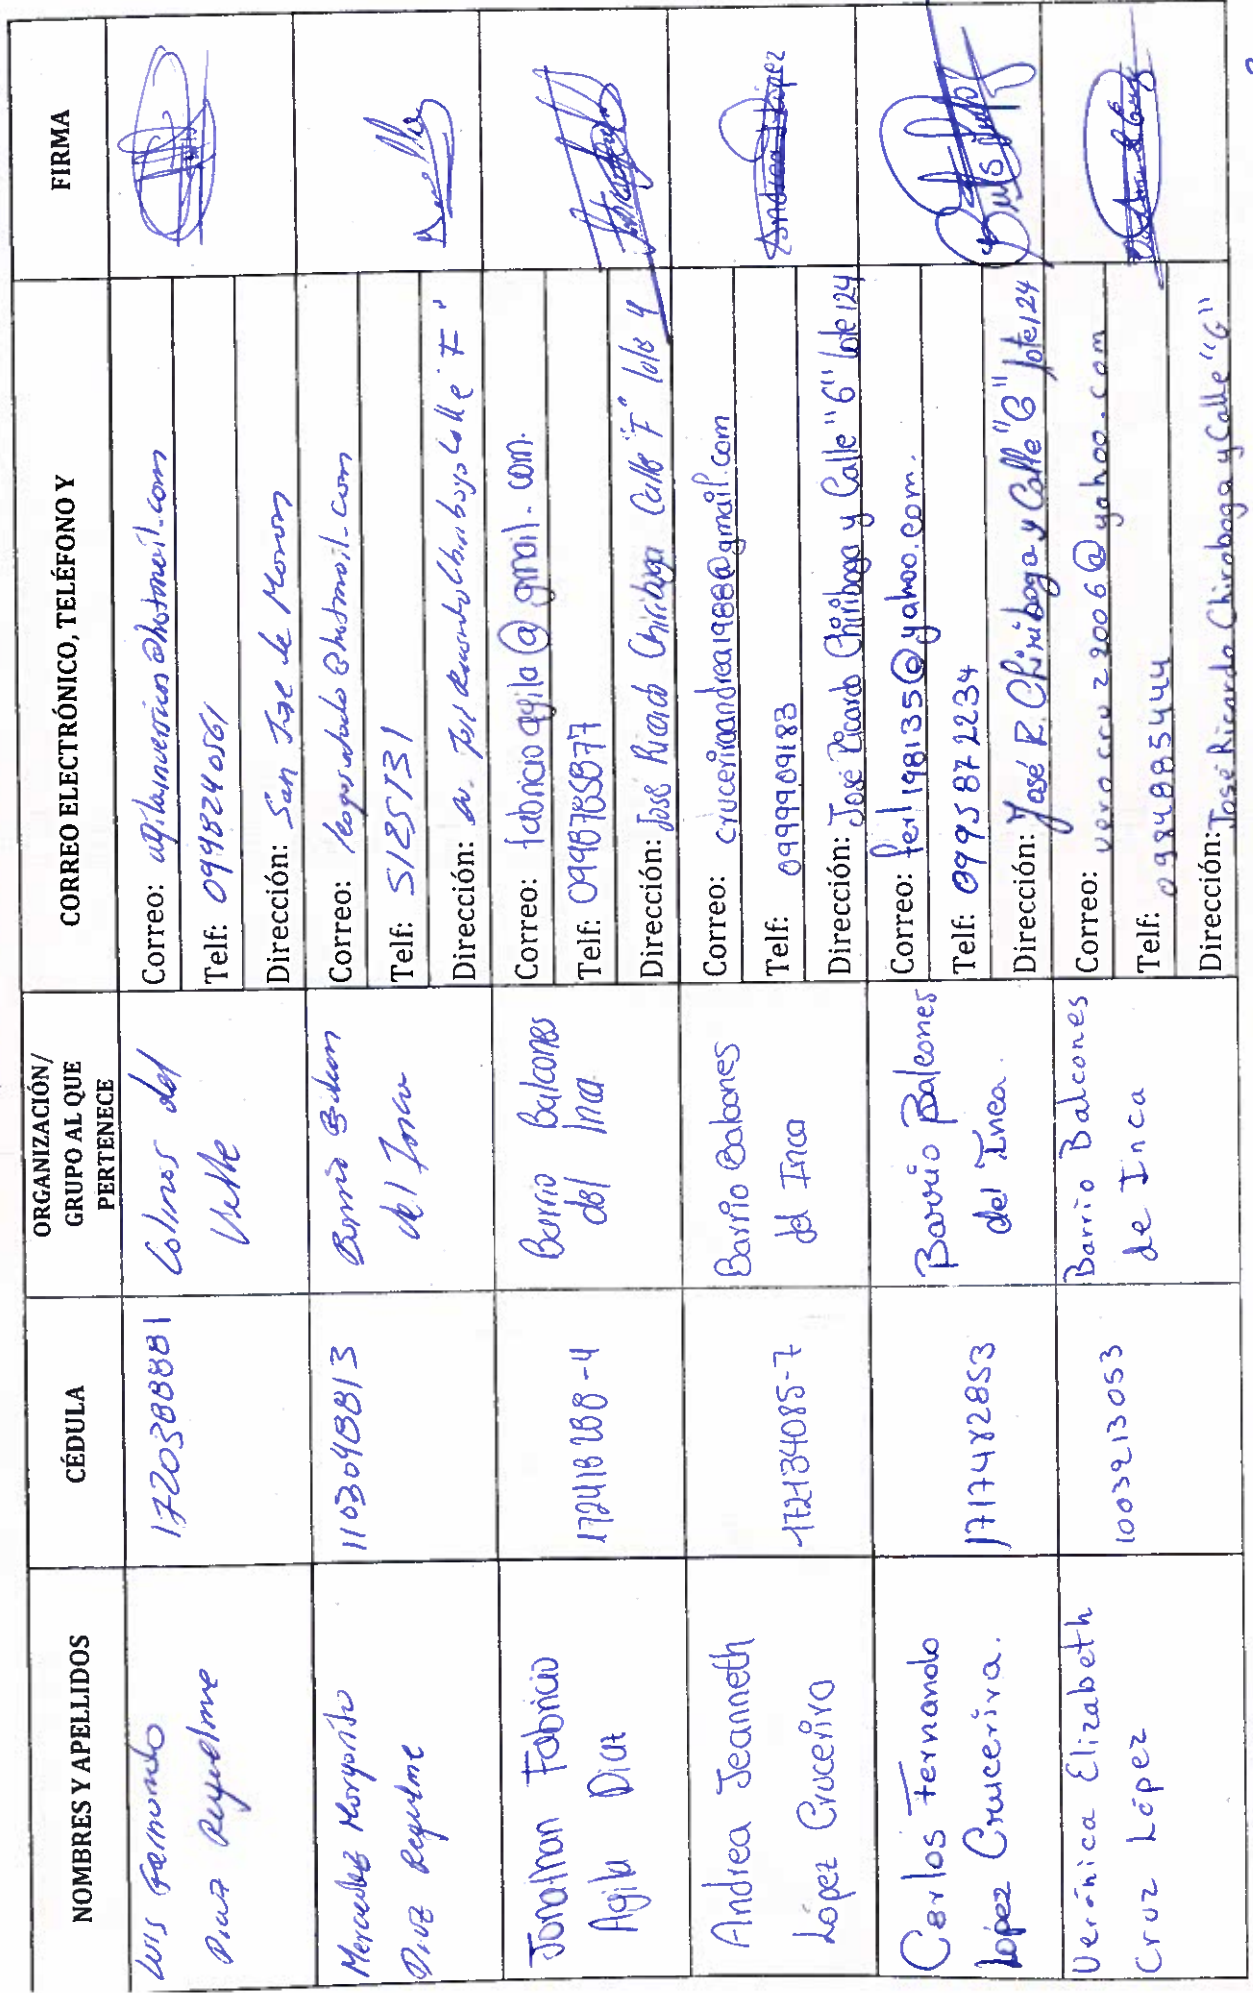 NOMBRES Y APELLIDOS
CÉDULA
ORGANIZACIÓN/
GRUPO AL QUE
PERTENECE
CORREO ELECTRÓNICO, TELÉFONO Y
FIRMA
Luis Germando
Diaz Requelme
1720388881
Colinas del
Valle
Correo: @hotmail.com
Telf: 09948240561
Dirección: San Jose de Moran
Mercedes Margarita
Diaz Requelme
1103048813
Barrio Balcon
del Inca
Correo: @hotmail.com
Telf: 5125131
Dirección: av. José Ricardo Chiriboga Calle "F"
Jonathan Fabricio
Agila Diaz
172418288-4
Barrio Balcones
del Inca
Correo: fabricioagila@gmail.com.
Telf: 0998785877
Dirección: José Ricardo Chiriboga Calle "F" lote 4
Andrea Jeanneth
López Crucerira
172134085-7
Barrio Balcones
del Inca
Correo: cruceriraandrea1988@gmail.com
Telf: 0999909183
Dirección: José Ricardo Chiriboga y Calle "G" lote 124
Andrea López
Carlos Fernando
López Crucerira.
1717482853
Barrio Balcones
del Inca
Correo: fer1198135@yahoo.com.
Telf: 0995872234
Dirección: José R. Chiriboga y Calle "G" lote 124
Verónica Elizabeth
Cruz López
1003213053
Barrio Balcones
de Inca
Correo: verocruz2006@yahoo.com
Telf: 0984885444
Dirección: José Ricardo Chiriboga y Calle "G"